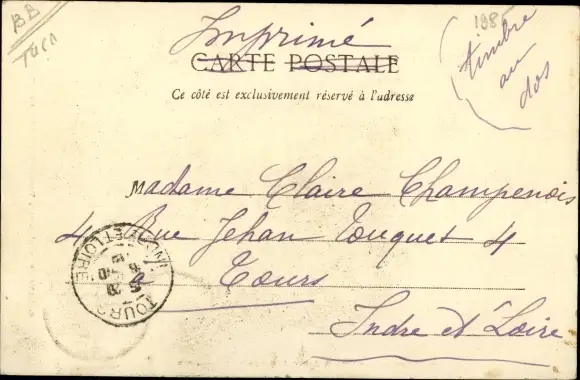 BB
Imprimé
CARTE POSTALE
Ce côté est exclusivement réservé à l'adresse
timbre
au
dos
Madame Claire Champenois
4 Rue Jehan Fouquet 4
à Tours
Indre et Loire
TOURS
INDRE-ET-LOIRE